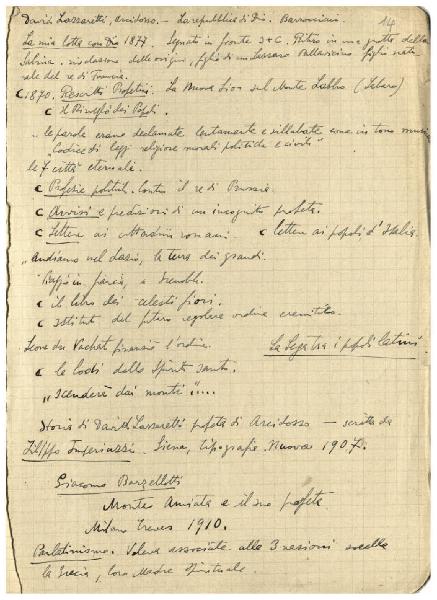 14
David Lazzaretti, Arcidosso. – La repubblica di Dio. Barrocciaio.
La mia lotta con Dio 1877. Segnato in fronte Ɔ+C. Ritiro in una grotta della
Sabina. rivelazione delle origini, figlio di un Lussano Pallavicino figlio natu
rale del re di Francia.
C 1870. Rescritti Profetici. La Nuova Sion sul Monte Labbro (Labaro)
C Il Risveglio dei Popoli.
"le parole erano declamate lentamente e sillabate come in tono musicale
"Codice di leggi religiose morali politiche e civili"
le 7 città eternali.
C Profezie politiche. Contro il re di Prussia.
C Avvisi e predizioni di un incognito profeta.
C Lettera ai cittadini romani. C lettera ai popoli d'Italia.
"Andiamo nel Lazio, la terra dei grandi.
Viaggio in Francia, a Grenoble.
C il libro dei celesti fiori.
C Istituti del futuro regolare ordine eremitico.
Leone du Vachat finanziò l'ordine.
La Lega tra i popoli latini.
C le lodi dello Spirito Santo.
"Scenderò dai monti"....
Storia di David Lazzaretti profeta di Arcidosso – scritta da
Filippo Imperiuzzi. Siena, tipografia Nuova 1907.
Giacomo Barzellotti
Monte Amiata e il suo profeta
Milano Treves 1910.
Panlatinismo. Voleva associate alle 3 nazioni sorelle
la Grecia, loro Madre Spirituale.